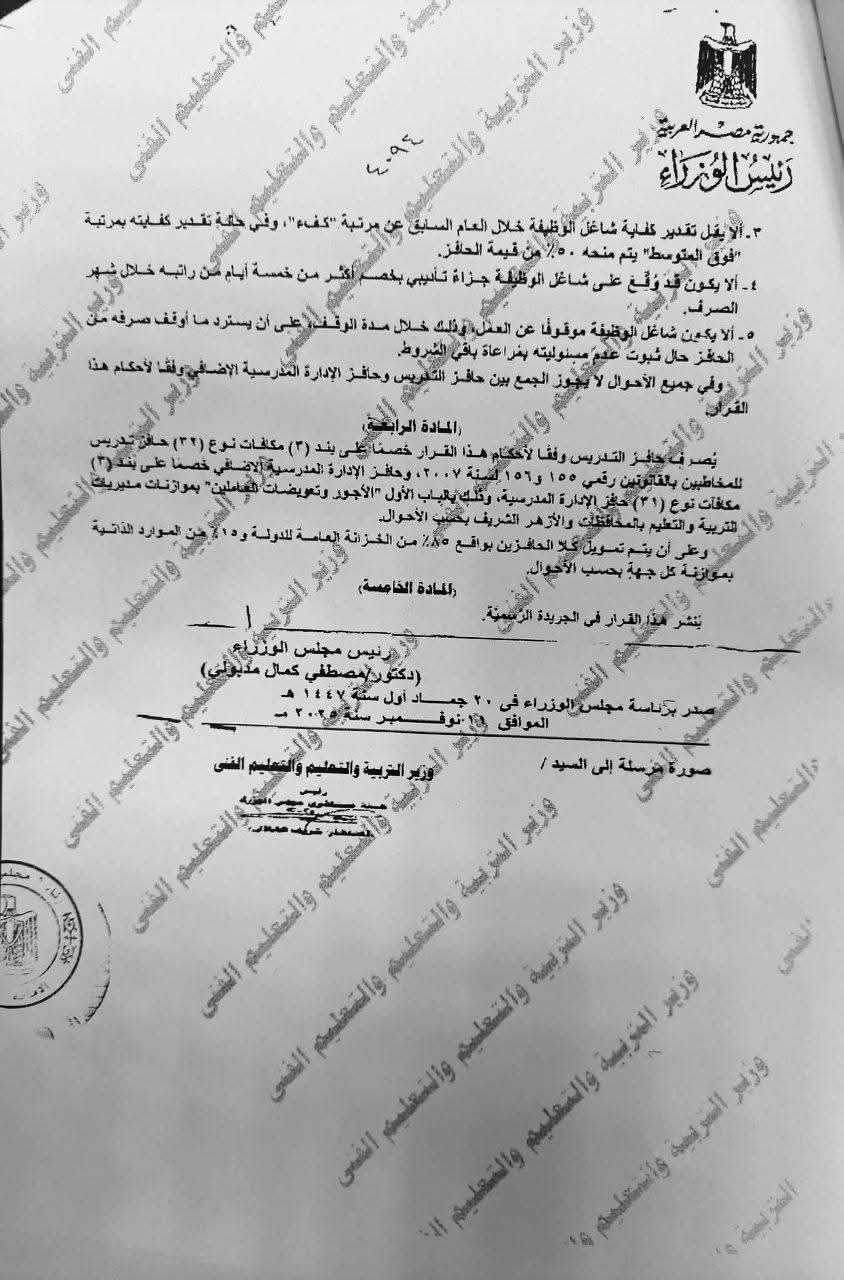 جمهورية مصر العربية
رئيس الوزراء
٤٠٩٤
٣- ألا يقل تقدير كفاية شاغل الوظيفة خلال العام السابق عن مرتبة "كفء"، وفي حالة تقدير كفايته بمرتبة
"فوق المتوسط" يتم منحه ٥٠٪ من قيمة الحافز.
٤- ألا يكون قد وُقّع على شاغل الوظيفة جزاءً تأديبي بخصم أكثر من خمسة أيام من راتبه خلال شهر
الصرف.
٥- ألا يكون شاغل الوظيفة موقوفًا عن العمل، وذلك خلال مدة الوقف، على أن يسترد ما أوقف صرفه من
الحافز حال ثبوت عدم مسئوليته بمراعاة باقي الشروط.
وفي جميع الأحوال لا يجوز الجمع بين حافز التدريس وحافز الإدارة المدرسية الإضافي وفقًا لأحكام هذا
القرار.
(المادة الرابعة)
يُصرف حافز التدريس وفقًا لأحكام هذا القرار خصمًا على بند (٣) مكافآت نوع (٣٢) حافز تدريس
للمخاطبين بالقانونين رقمي ١٥٥ و١٥٦ لسنة ٢٠٠٧، وحافز الإدارة المدرسية الإضافي خصمًا على بند (٣)
مكافآت نوع (٣١) حافز الإدارة المدرسية، وذلك بالباب الأول "الأجور وتعويضات العاملين" بموازنات مديريات
التربية والتعليم بالمحافظات والأزهر الشريف بحسب الأحوال.
وعلى أن يتم تمويل كلا الحافزين بواقع ٨٥٪ من الخزانة العامة للدولة و١٥٪ من الموارد الذاتية
بموازنة كل جهة بحسب الأحوال.
(المادة الخامسة)
يُنشر هذا القرار في الجريدة الرسمية.
رئيس مجلس الوزراء
(دكتور/مصطفي كمال مدبولي)
صدر برئاسة مجلس الوزراء في ٢٠ جماد أول سنة ١٤٤٧ هـ
الموافق ١١ نوفمبر سنة ٢٠٢٥ مـ
صورة مرسلة إلى السيد /
وزير التربية والتعليم والتعليم الفنى
رئيس